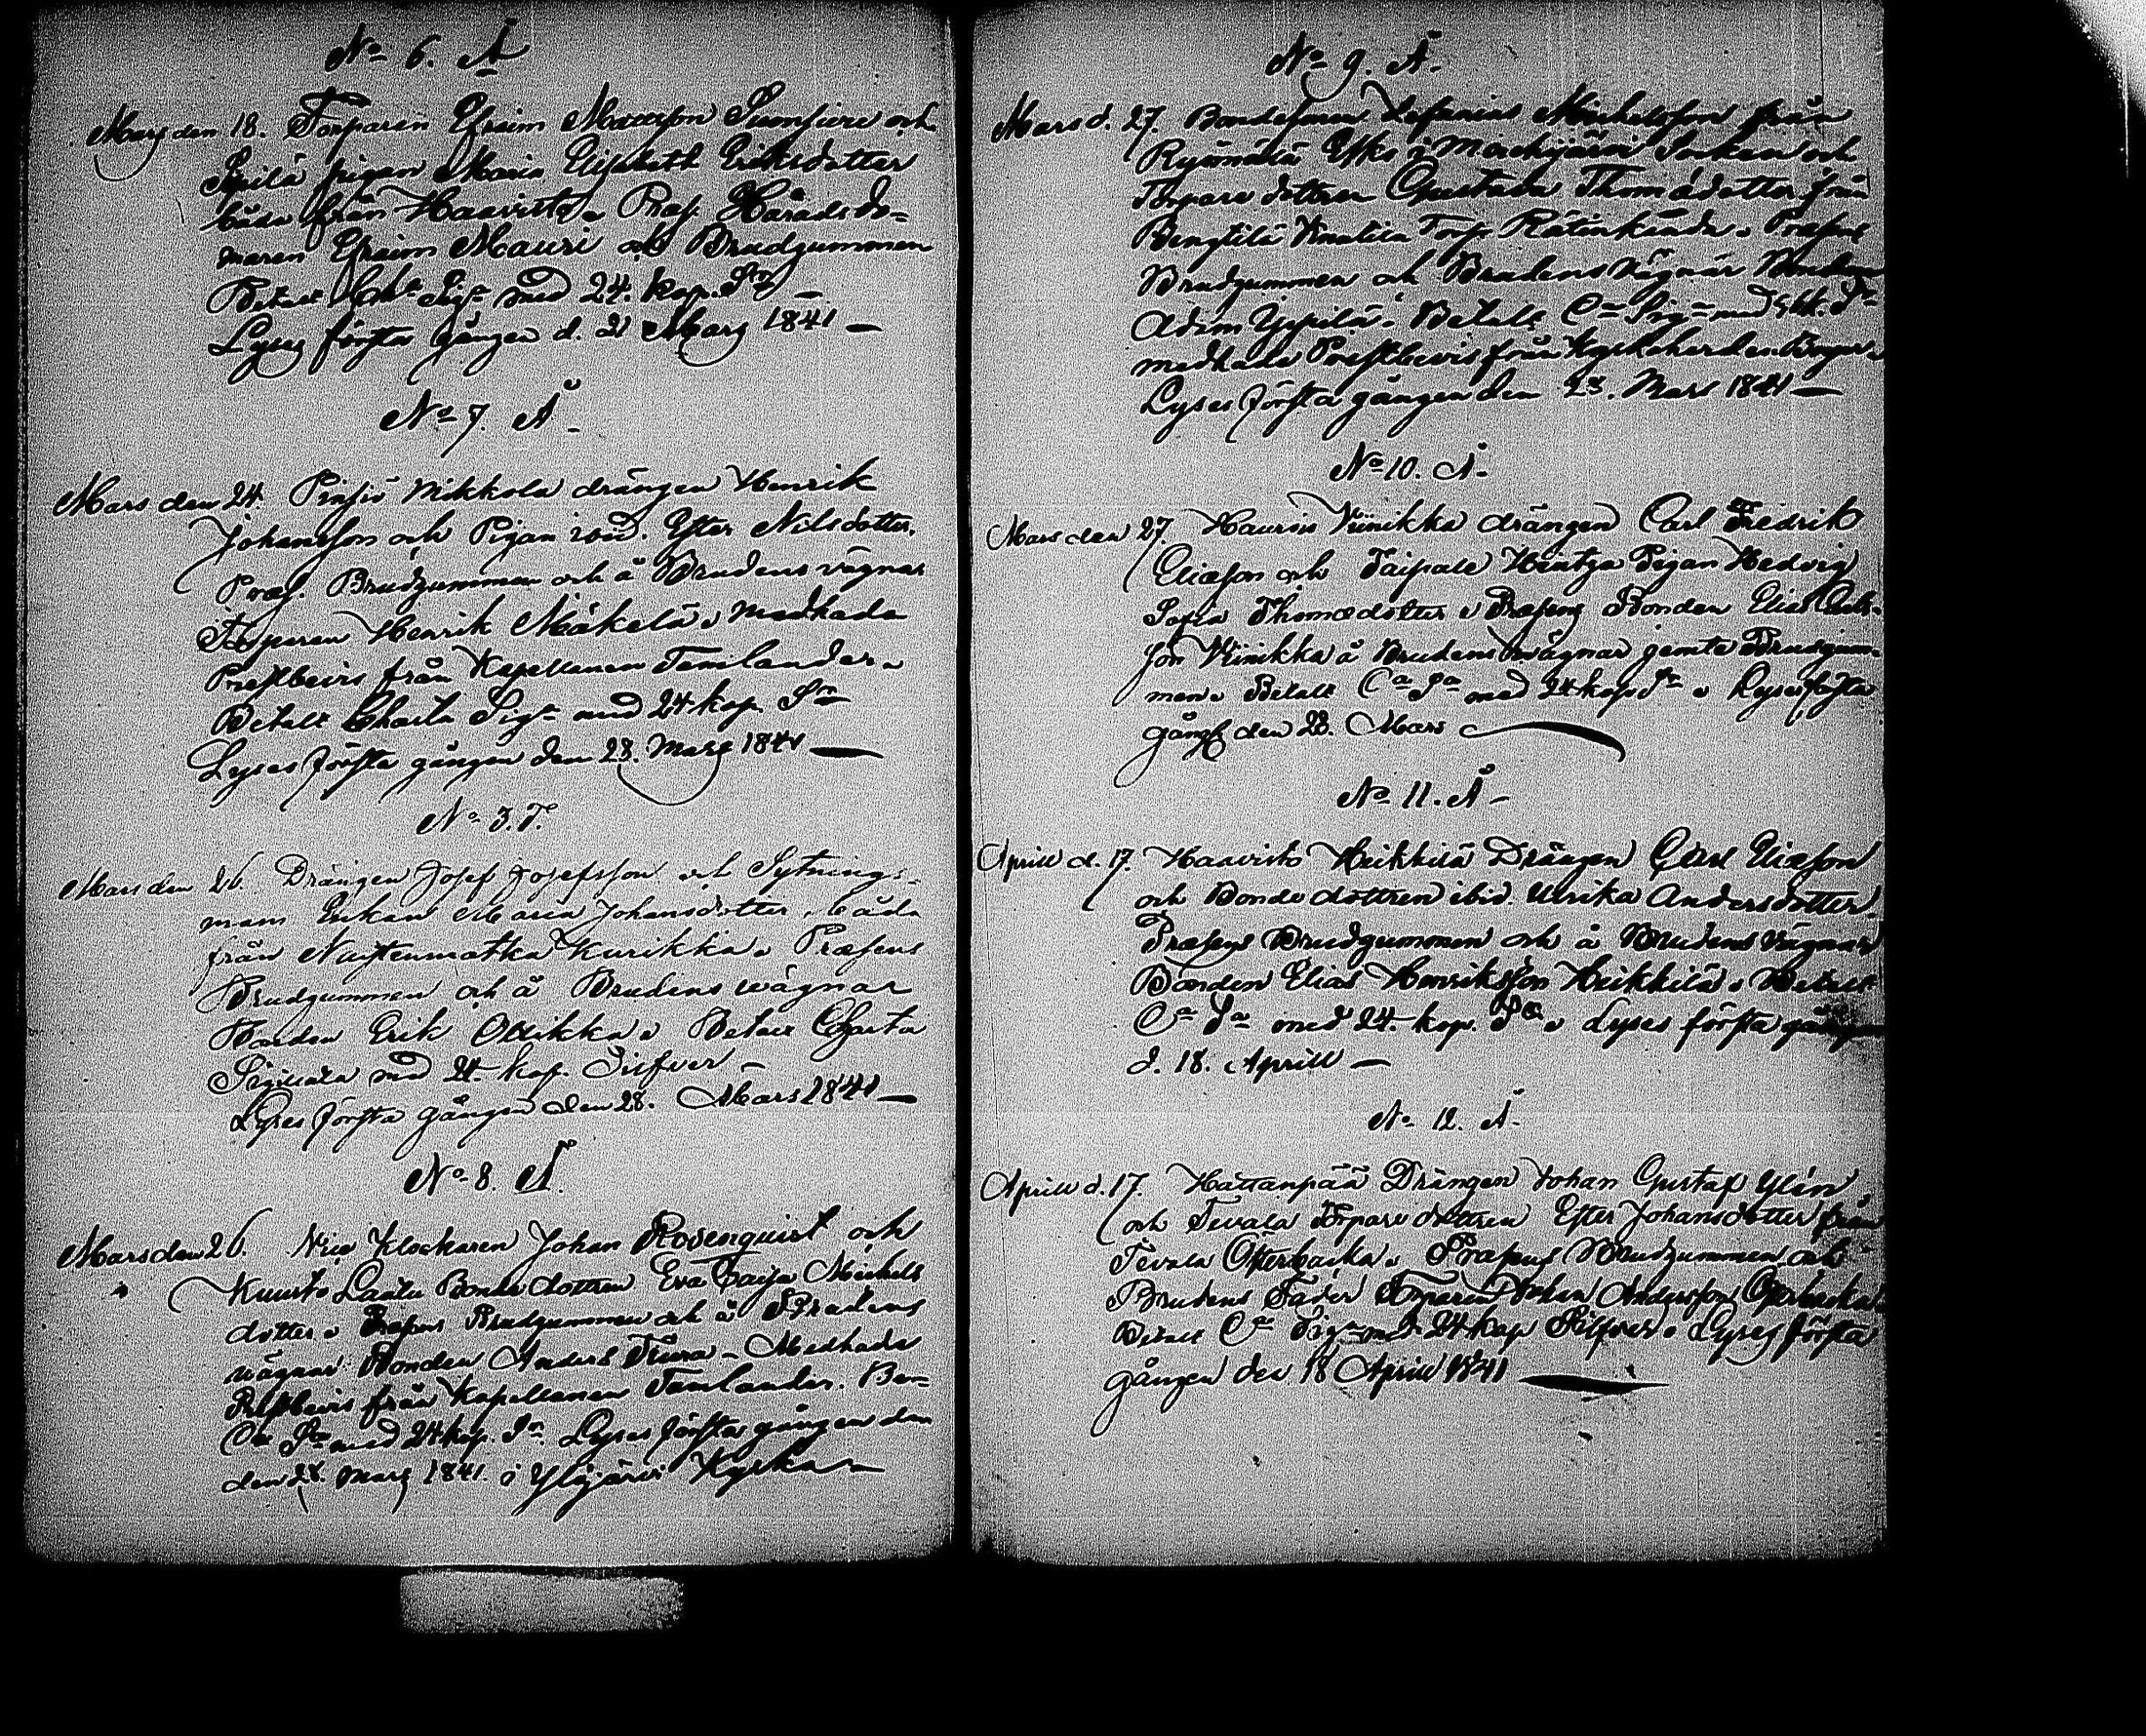 No 6. Å
Mars den 18. Torparen Efraim Mattsson Suonsivu och
Sepilä pigan Maria Elisabeth Eriksdotter
båda från Haavisto. Præs. Härads do-
maren Efraim Mauri och Brudgummen
Betalt Cha Siga med 24. kop. Sr
Lyses första gången d. 21 Mars 1841 —
No 7. Å
Mars den 24. Pinsiö Mikkola drängen Henrik
Johansson och Pigan ibid. Ester Nilsdotter.
Præs. Brudgummen och å Brudens vägnar
Torparen Henrik Mäkelä. medhade
Prestbevis från Kapellanen Temlander.
Betalt Charta Siga med 24 kop. Sr
Lyses första gången den 28. Mars 1841 —
No 3. T.
Mars den 26. Drängen Josef Josefsson och Sytnings-
mans Enkan Maria Johansdotter, båda
från Nuijtenmatka Kurikka. Præsens
Brudgummen och å Brudens wägnar
Bonden Erik Ollikka. Betalt Charta
Sigillata med 24. kop. Silfver —
Lyses första gången den 28. Mars 1841 —
No 8. Å.
Mars den 26. Vice Klockaren Johan Rosenquist och
Kuusto Laatu Bonde dottren Eva Caisa Michels
dotter. Præsens Brudgummen och å Brudens
vägnar Bonden Anders — Medhade
Prestbevis från Kapellanen Temlander. Be-
Ca Sa med 24 kop. Sr. Lyses första gången den
den 28. Mars 1841. i Ylöjärvi Kyrka —
No 9. Å.
Mars d. 27. Bondesonen Zefanias Michelsson från
i Mouhijärvi Socken och
Torpare dottren Gustava Thomædotter från
Bengtilä Torp Præsens
Brudgummen och å Brudens vägnar Bonden
Adam Yppilä. Betalt Ca Siga med 24 k. Sr
medhade Prestbevis från Kyrkoherden
Lyses första gången den 28. Mars 1841 —
No 10. Å.
Mars den 27. Haursis Viinikka drängen Carl Fredrik
Eliasson och Taipale Hintza Pigan Hedvig
Sofia Thomædotter. Præsens Bonden Elias
son Viinikka å Brudens vägnar jemte Brudgum-
men. Betalt Ca Sa med 24 kop Sr. Lyses första
gång den 28. Mars
No 11. Å —
Aprill d. 17. Haavisto Heikkilä Drängen Carl Eliasson
och Bonde dottren ibid. Ulrika Andersdotter.
Præsens Brudgummen och å Brudens vägnar
Bonden Elias Henriksson Heikkilä. Betalt
Ca Sa med 24. kop. Sr. Lyses första gången
d. 18. Aprill —
No 12. Å.
Aprill d. 17. Hattanpää Drängen Johan Gustaf Ylén
och Tevala Torpare dottren Ester Johansdotter från
Tevala Österbacka. Præsens Brudgummen och
Brudens Fader Torparen Johan Andersson Österbacka
Betalt Ca Siga med 24 kop Silfver. Lyses första
gången den 18 Aprill 1841